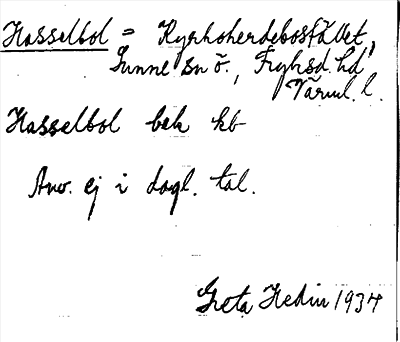 Hasselbol = Kyrkoherdebostället,
Sunne sn ö., Fryksd. hd
Värml. l.
Hasselbol bek kb
Anv. ej i dagl. tal.
Greta Hedin 1934